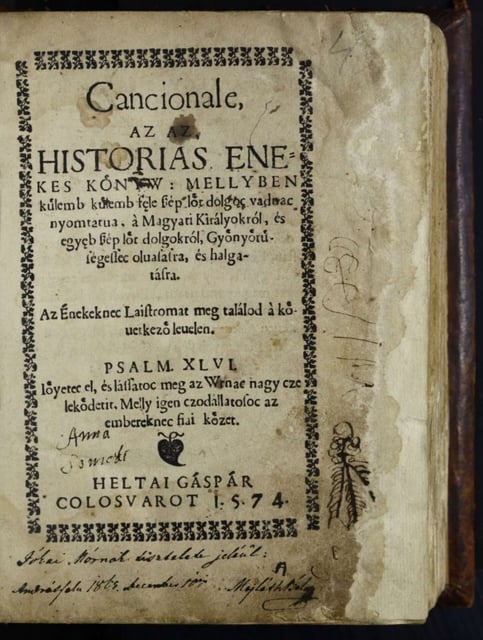 Cancionale,
AZ AZ,
HISTORIAS ENE-
KES KŐNYW: MELLYBEN
kűlemb kűlemb fęle ſép lőt dolgoc vadnac
nyomtatua, à Magyari Királyokról, és
egyęb ſép lőt dolgokról, Győnyőrű-
ſégeſſec oluaſaſra, és halga-
táſra.
Az Énekeknec Laiſtromat meg találod à kő-
uetkező leuelen.
PSALM. XLVI.
Iőyetec el, és láſſatoc meg az Wrnac nagy cze
lekődetit. Melly igen czodállatoſoc az
embereknec fiai kőzet.
Anna
HELTAI GÁSPÁR
COLOSVAROT 1. 5. 7 4.
Jókai Mórnak tisztelete jeléül:
Andrásfalu december